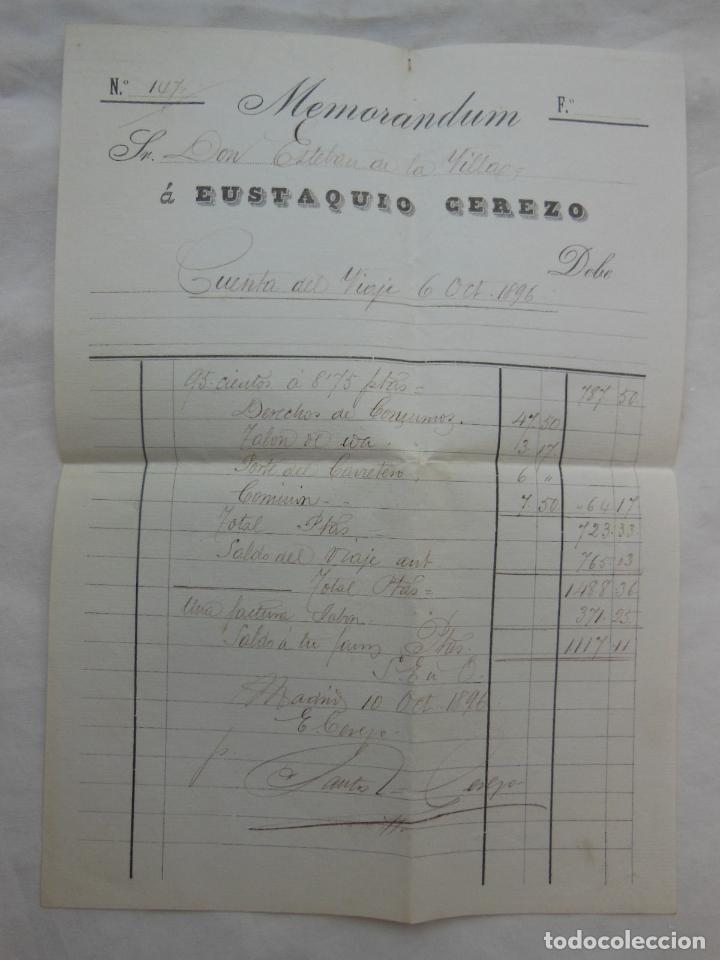 N.º 147 Memorandum F.º
Sr. Don Esteban de la Villa
á EUSTAQUIO CEREZO
Debe
Cuenta del Viaje 6 Oct. 1896
95 cientos á 8'75 ptas = 787 50
Derechos de Consumos. 47 50
Talon de 3 17
Porte del Carretero, 6 "
Comision 7 50 64 17
Total Ptas = 723 33
Saldo del Viaje ant 765 13
Total Ptas = 1488 36
Una factura Jabon 371 25
Saldo á tu favor Ptas. 1117 11
S. E. ú O.
Madrid 10 Oct. 1896
E Cerezo
p.
Santos Cerezo
todocoleccion.net